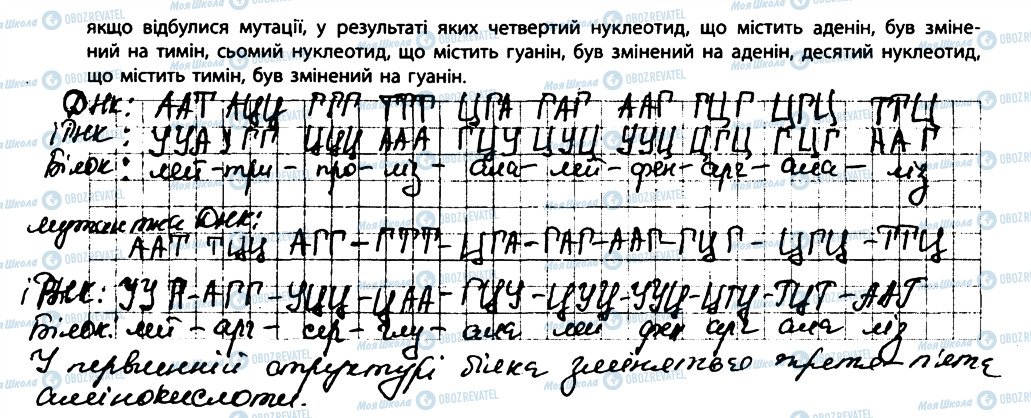 якщо відбулися мутації, у результаті яких четвертий нуклеотид, що містить аденін, був зміне-
ний на тимін, сьомий нуклеотид, що містить гуанін, був змінений на аденін, десятий нуклеотид,
що містить тимін, був змінений на гуанін.
ДНК: ААТ АЦЦ ГГГ ТТТ ЦГА ГАГ ААГ ГЦГ ЦГЦ ТТЦ
іРНК: УУА УГГ ЦЦЦ ААА ГЦУ ЦУЦ УУЦ ЦГЦ ГЦГ ААГ
Білок: лей - три - про - ліз - ала - лей - фен - арг - ала - ліз
мутантка ДНК:
ААТ ТЦЦ АГГ - ГТТ - ЦГА - ГАГ - ААГ - ГЦГ - ЦГЦ - ТТЦ
іРНК: УУА - АГГ - УЦЦ - ЦАА - ГЦУ - ЦУЦ - УУЦ - ЦГЦ - ГЦГ - ААГ
Білок: лей - арг - сер - глу - ала лей фен арг ала ліз
У первинній структурі білка третя п'ята
амінокислоти.